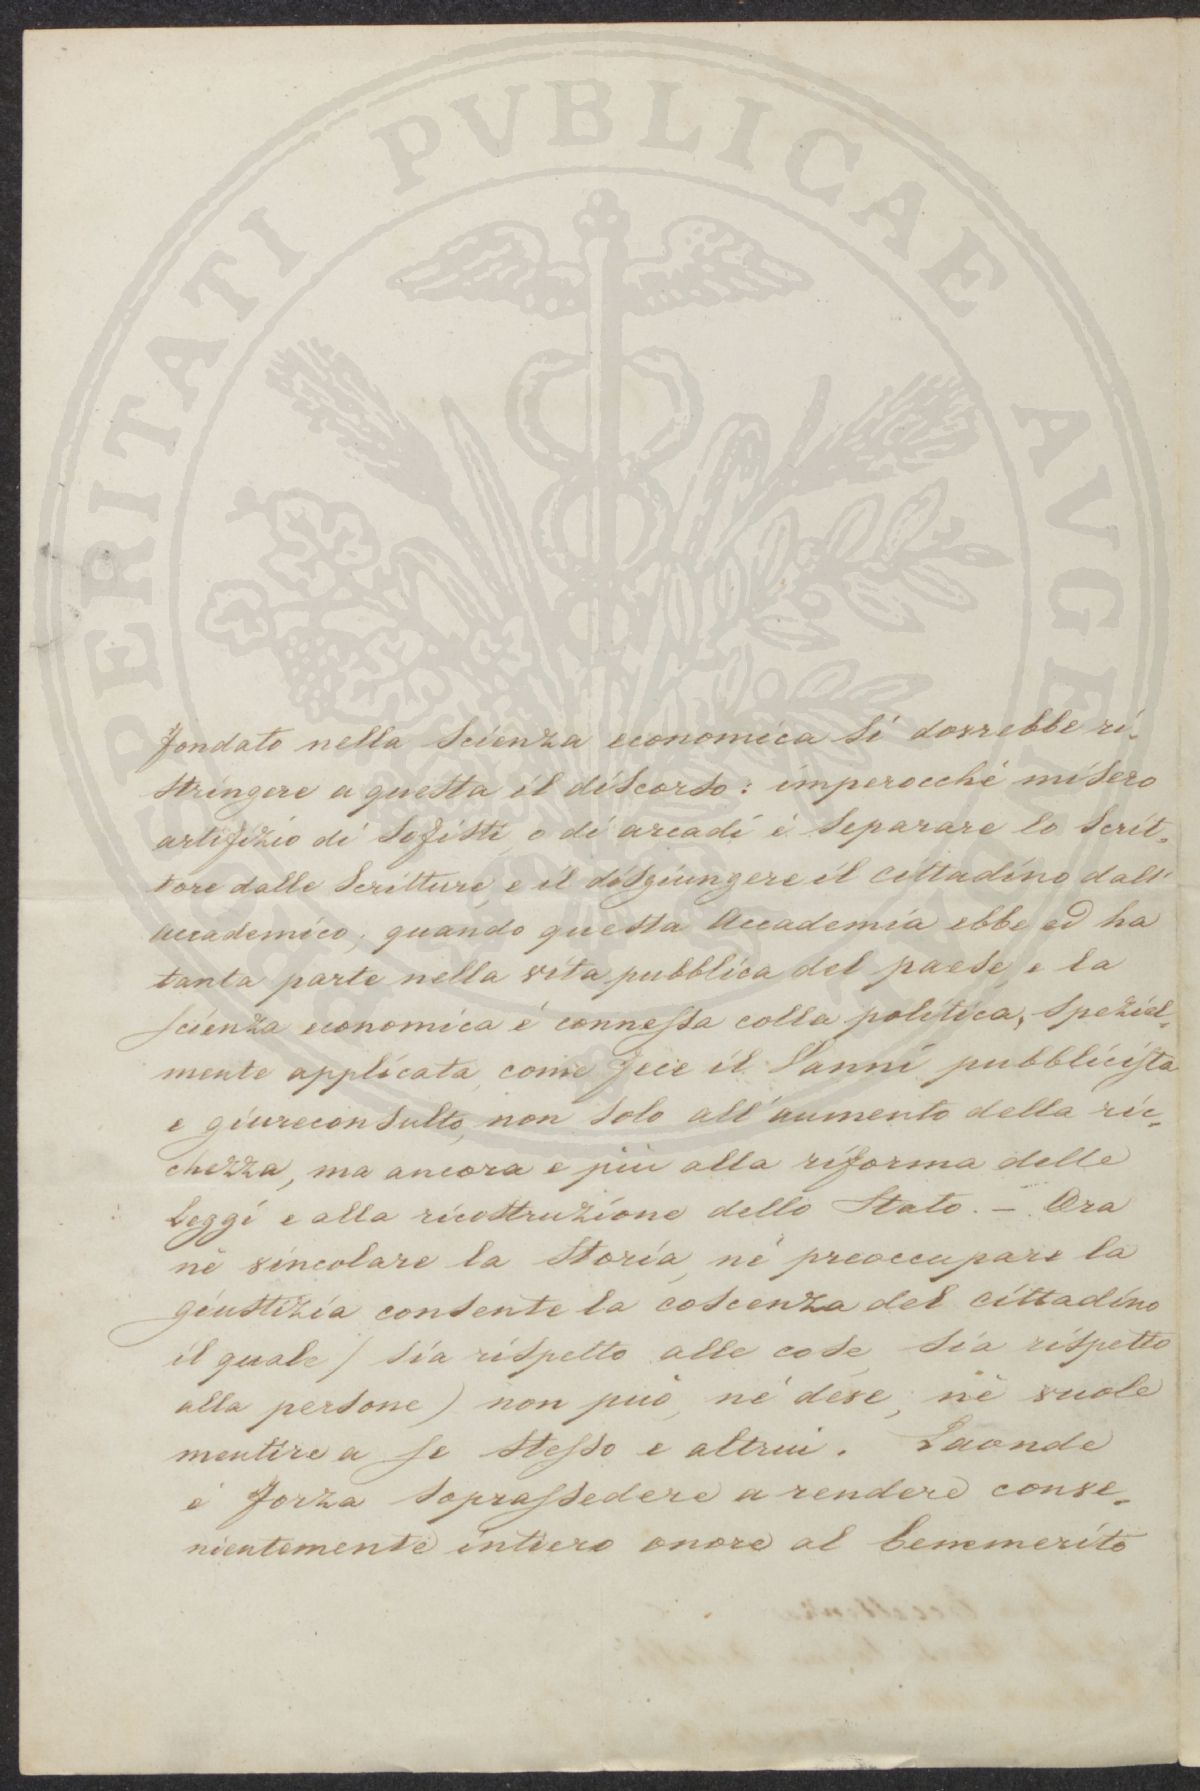 PROSPERITATI PVBLICAE AVGENDAE
fondato nella scienza economica si dovrebbe ri-
stringere a questa il discorso: imperocché misero
artifizio di sofisti o di arcadi è separare lo scrit-
tore dalle scritture, e il disgiungere il cittadino dall'
accademico, quando questa Accademia ebbe ed ha
tanta parte nella vita pubblica del paese, e la
scienza economica è connessa colla politica, spezial-
mente applicata, come fece il Vanni pubblicista
e giureconsulto, non solo all'aumento della ric-
chezza, ma ancora e più alla riforma delle
Leggi e alla ricostruzione dello Stato. – Ora
nè vincolare la storia, nè preoccupare la
giustizia consente la coscenza del cittadino
il quale (sia rispetto alle cose, sia rispetto
alla persone) non può, nè deve, nè vuole
mentire a se stesso e altrui. Laonde
è forza soprassedere a rendere conve-
nientemente intiero onore al benemerito